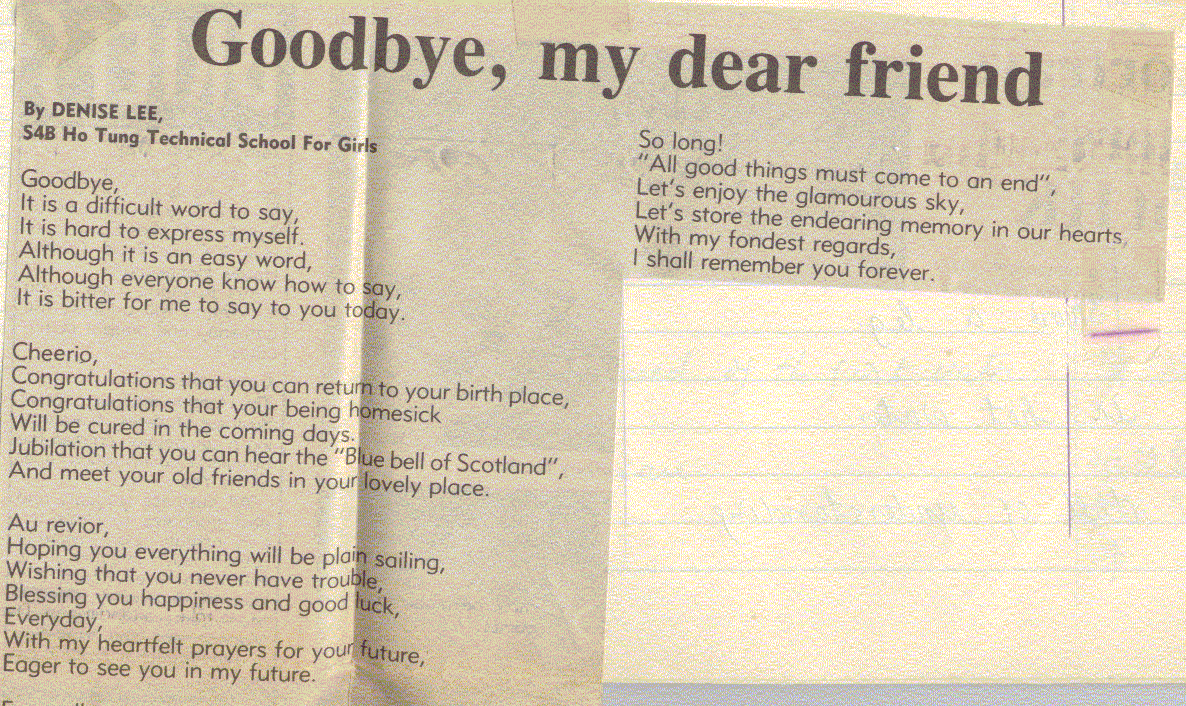 Goodbye, my dear friend
By DENISE LEE,
S4B Ho Tung Technical School For Girls
Goodbye,
It is a difficult word to say,
It is hard to express myself.
Although it is an easy word,
Although everyone know how to say,
It is bitter for me to say to you today.
Cheerio,
Congratulations that you can return to your birth place,
Congratulations that your being homesick
Will be cured in the coming days.
Jubilation that you can hear the "Blue bell of Scotland",
And meet your old friends in your lovely place.
Au revior,
Hoping you everything will be plain sailing,
Wishing that you never have trouble,
Blessing you happiness and good luck,
Everyday,
With my heartfelt prayers for your future,
Eager to see you in my future.
So long!
"All good things must come to an end",
Let's enjoy the glamourous sky,
Let's store the endearing memory in our hearts,
With my fondest regards,
I shall remember you forever.